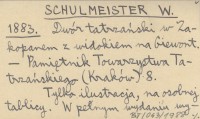 SCHULMEISTER W.
1883. Dwór tatrzański w Za-
kopanem z widokiem na Giewont.
— Pamiętnik Towarzystwa Ta-
trzańskiego (Kraków) 8.
Tylko ilustracja, na osobnej
tablicy. W pełnym wydaniu